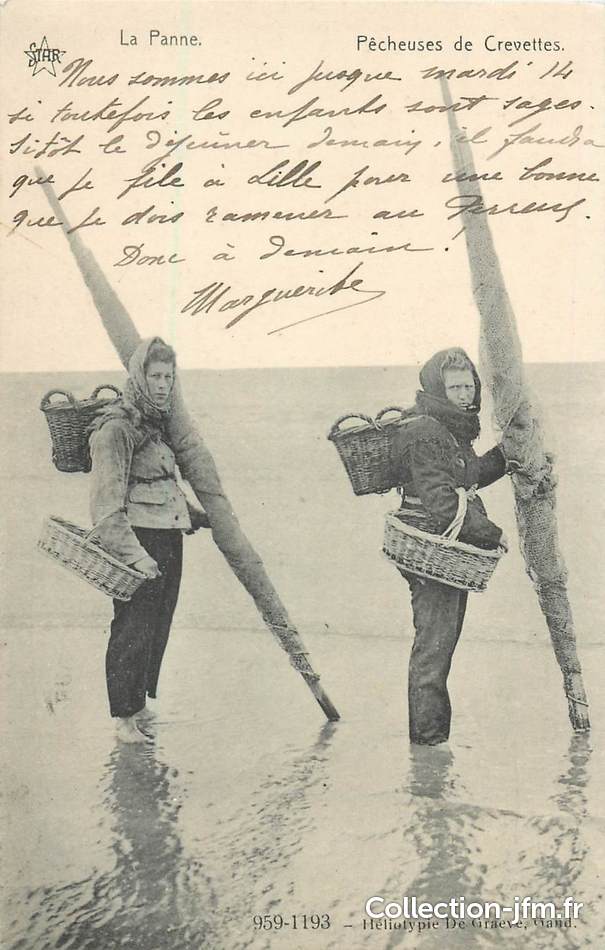 STAR
La Panne.
Pêcheuses de Crevettes.
Nous sommes ici jusque mardi 14
si toutefois les enfants sont sages.
Sitôt le déjeûner demain, il faudra
que je file à Lille pour une bonne
que je dois ramener au
Donc à demain.
Marguerite
959-1193 - Héliotypie De Graeve, Gand.
Collection-jfm.fr